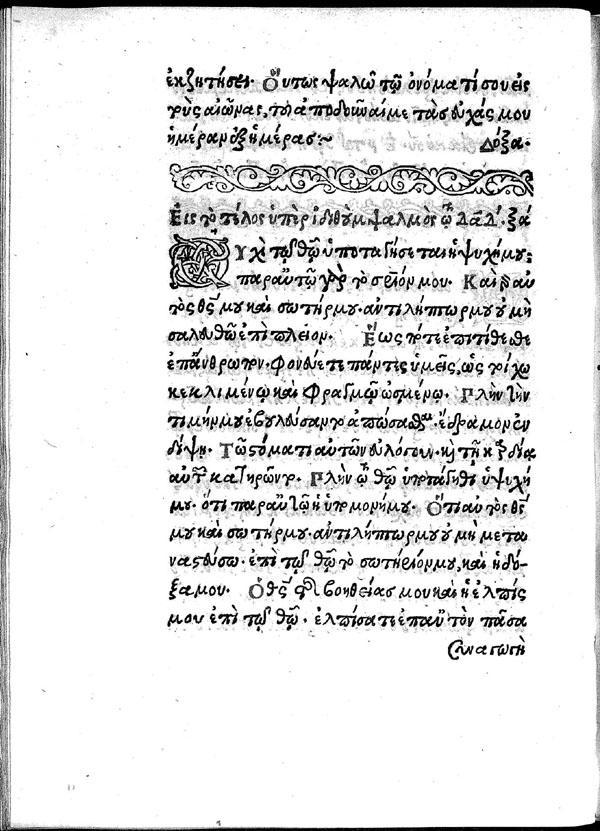 ἐκζητήσει. Οὕτως ψαλῶ τῷ ὀνόματί σου εἰς
τοὺς αἰῶνας, τοῦ ἀποδοῦναί με τὰς εὐχάς μου
ἡμέραν ἐξ ἡμέρας:~ Δόξα.
Εἰς τὸ τέλος ὑπὲρ ἰδιθοὺμ ψαλμὸς τῷ δᾱδ. ξα
Οὐχὶ τῷ θῶ ὑποταγήσεται ἡ ψυχή μου;
παρ αὐτῷ γὰρ τὸ σωτήριόν μου. Καὶ γὰρ αὐ
τὸς θς̄ μου καὶ σωτήρ μου. ἀντιλήπτωρ μου οὐ μὴ
σαλευθῶ ἐπὶ πλεῖον. Ἕως πότε ἐπιτίθεσθε
ἐπ ἄνθρωπον. φονεύετε πάντες ὑμεῖς, ὡς τοίχω
κεκλιμένω καὶ φραγμῷ ὠσμένω. Πλὴν τὴν
τιμήν μου ἐβουλεύσαντο ἀπώσασθαι. ἔδραμον ἐν
δίψῃ. Τῷ στόματι αὐτῶν εὐλόγουν. κὶ τῇ καρδία
αὐτῶν κατηρῶντο. Πλὴν τῷ θῶ ὑποτάγηθι ἡ ψυχή
μου. ὅτι παρ αὐτῷ ἡ ὑπομονή μου. Ὅτι αὐτὸς θς̄
μου καὶ σωτήρ μου. ἀντιλήπτωρ μου οὐ μὴ μετα
ναστεύσω. ἐπὶ τῷ θῶ τὸ σωτήριόν μου, καὶ ἡ δό-
ξα μου. Ὁ θς̄ τῆς βοηθείας μου καὶ ἡ ἐλπίς
μου ἐπὶ τῷ θῶ. ἐλπίσατε ἐπ αὐτὸν πᾶσα
συναγωγὴ